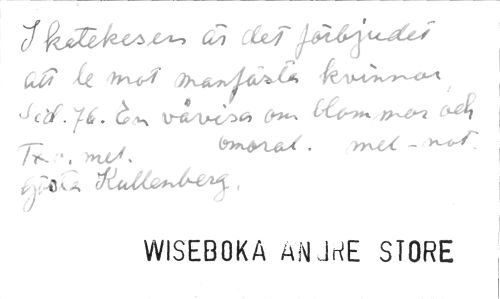 I katekesen är det förbjudet
att le mot manfästa kvinnor
Sid. 76. En vårvisa om blommor och
omoral. mel-not.
Gösta Kullenberg.
WISEBOKA ANDRE STORE